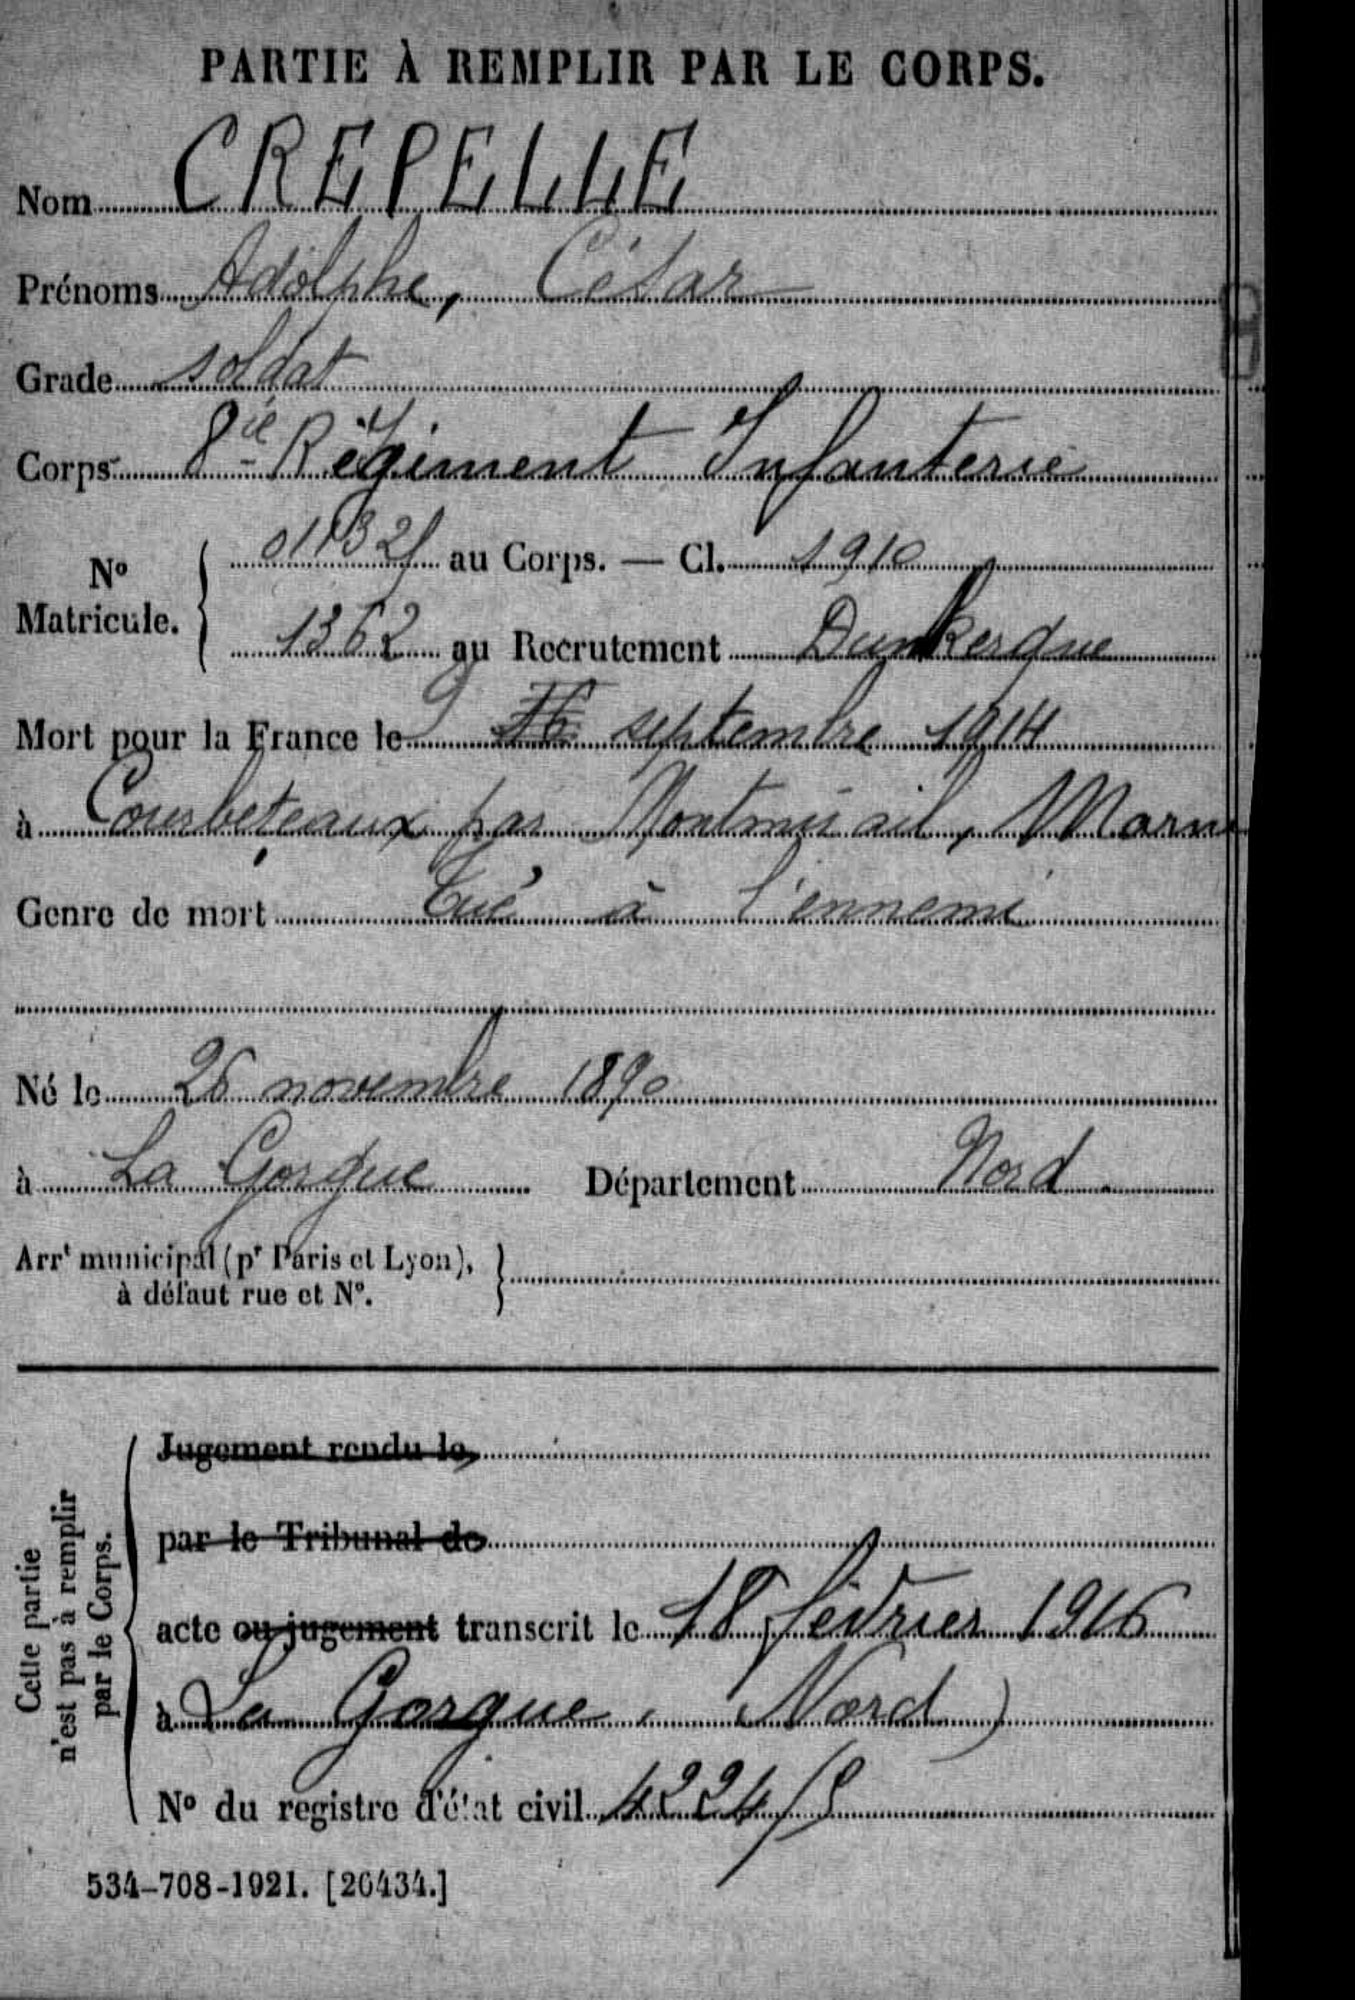 PARTIE À REMPLIR PAR LE CORPS.
Nom CREPELLE
Prénoms Adolphe, César
Grade soldat
Corps 8ie Régiment Infanterie
N° Matricule. { au Corps. — Cl. 1910
1362 au Recrutement Dunkerque
Mort pour la France le 9 16 septembre 1914
à Courbeteaux par Montmirail, Marne
Genre de mort Tué à l'ennemi
Né le 26 novembre 1890
à La Gorgue Département Nord.
Arrt municipal (pr Paris et Lyon),
à défaut rue et N°.
Cette partie
n'est pas à remplir
par le Corps.
Jugement rendu le
par le Tribunal de
acte ou jugement transcrit le 18 février 1916
à La Gorgue, (Nord)
N° du registre d'état civil 4224/
534-708-1921. [26434.]